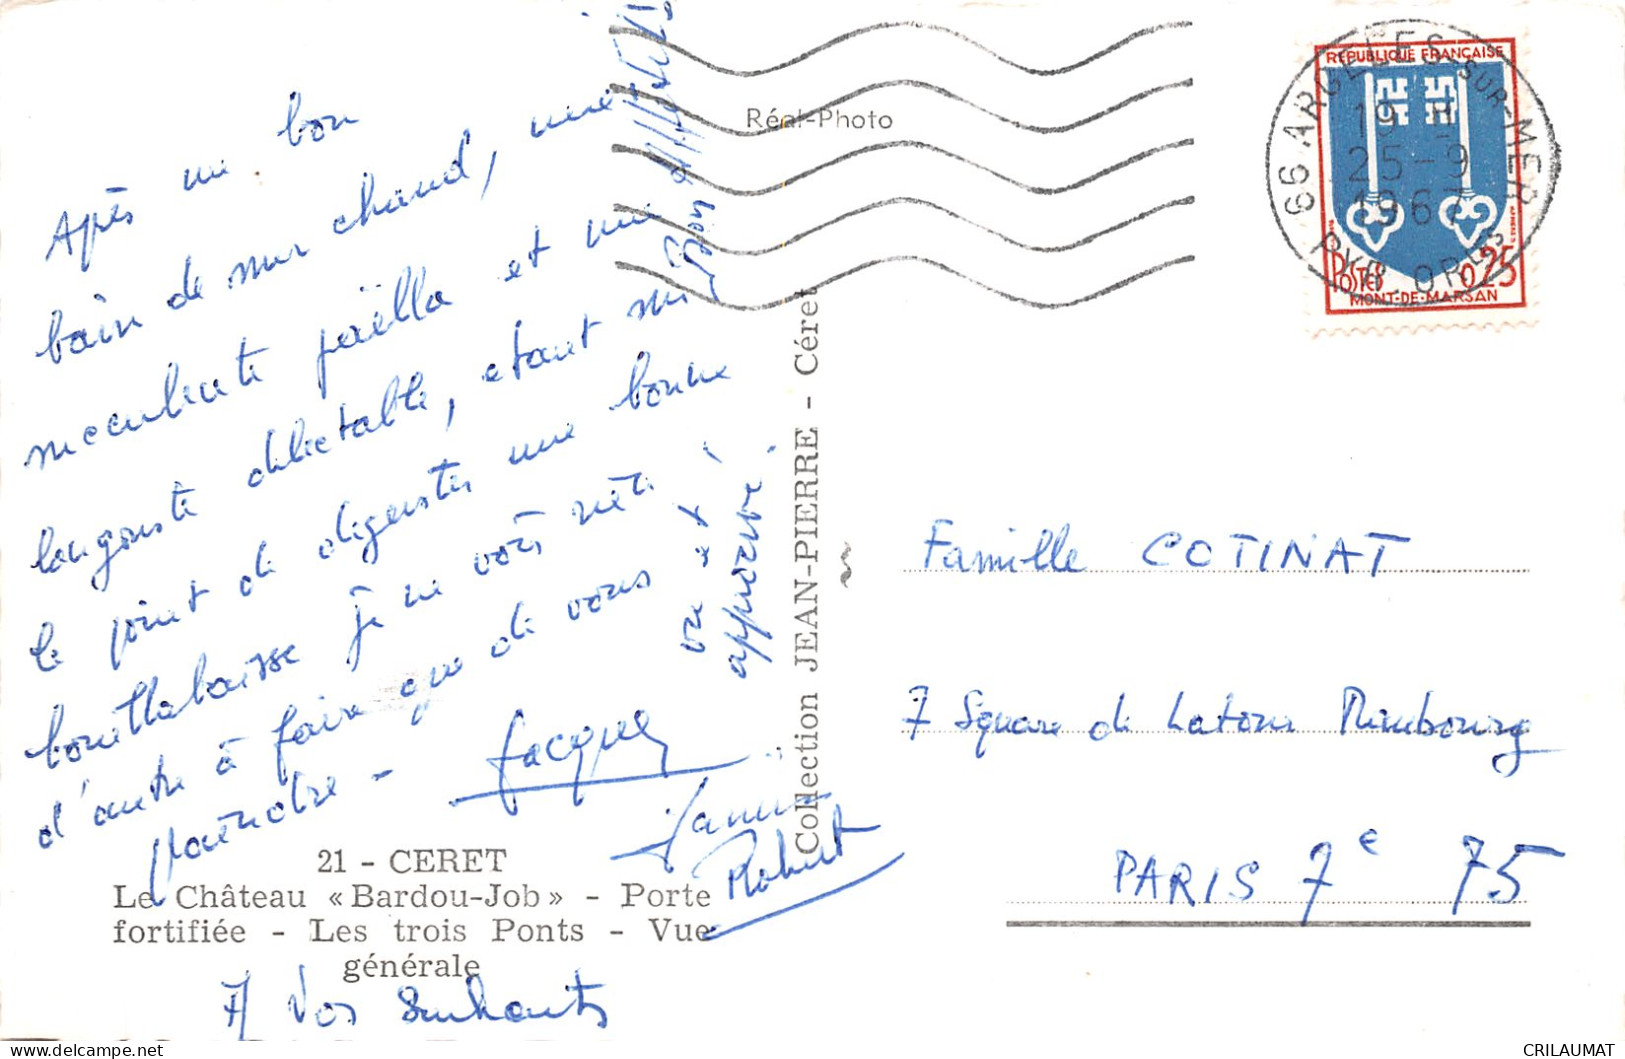 Après un bon
bain de mer chaud, une
succulente paëlla et une
langouste délectable, étant sur
le point de digester une bonne
bouillabaisse je ne vois rien
d'autre à faire que de vous
plaindre -
Jacques
vu et
approuvé !
Robert
A Vos Souhaits
21 - CERET
Le Château « Bardou-Job » - Porte
fortifiée - Les trois Ponts - Vue
générale
Réal-Photo
Collection JEAN-PIERRE - Céret
REPUBLIQUE FRANÇAISE
POSTES 0,25
MONT-DE-MARSAN
66 ARGELES-SUR-MER
19 H
25-9
1967
PYR. ORLES
Famille COTINAT
7 Square de Latour Maubourg
PARIS 7e 75
CRILAUMAT